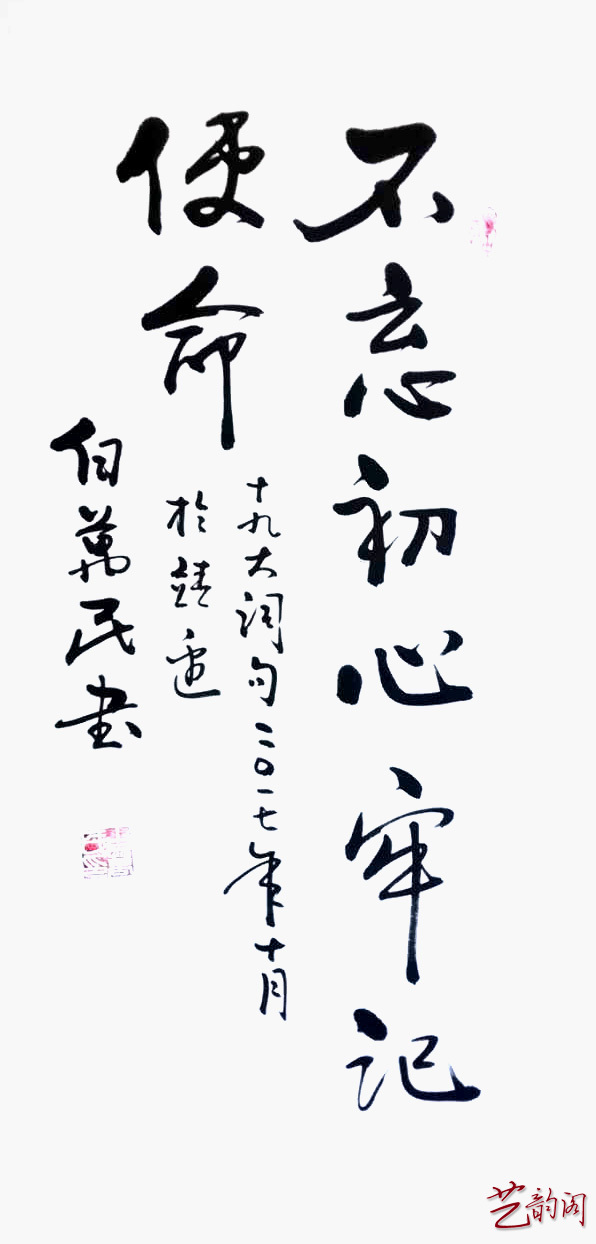 不忘初心牢记
使命
十九大词句二〇一七年十月
於靖边
萬民書
艺韵阁